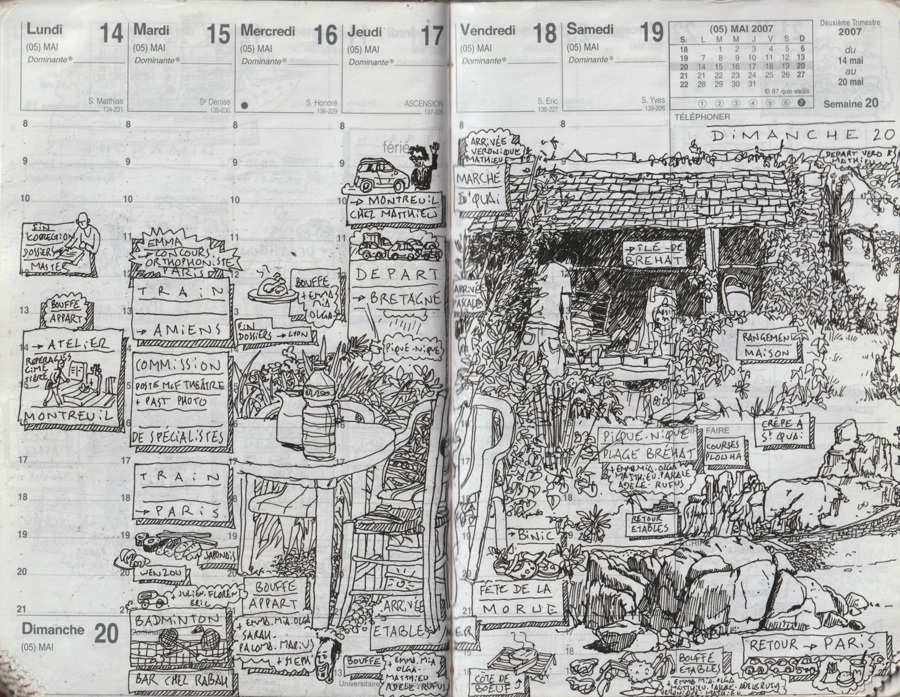 Lundi 14
(05) MAI
Dominante
S. Matthias
134-231
Mardi 15
(05) MAI
Dominante
Se Denise
135-230
Mercredi 16
(05) MAI
Dominante
S. Honoré
136-229
Jeudi 17
(05) MAI
Dominante
ASCENSION
férié
Vendredi 18
(05) MAI
Dominante
S. Eric
138-227
Samedi 19
(05) MAI
Dominante
S. Yves
139-226
(05) MAI 2007
S. L M M J V S D
18 1 2 3 4 5 6
19 7 8 9 10 11 12 13
20 14 15 16 17 18 19 20
21 21 22 23 24 25 26 27
22 28 29 30 31
© 87 quo vadis
Deuxième Trimestre
2007
du
14 mai
au
20 mai
Semaine 20
TÉLÉPHONER
DIMANCHE 20
FIN
CORRECTION
DOSSIERS
MASTER
BOUFFE
APPART
→ ATELIER
MONTREUIL
EMMA
→ CONCOURS
ORTHOPHONISTE
PARIS
TRAIN
→ AMIENS
COMMISSION
POSTE MCF THÉÂTRE
+ PAST PHOTO
DE SPÉCIALISTES
TRAIN
→ PARIS
JAPONAIS
WENZOU
JULIEN. FLOREN
BADMINTON
BAR CHEZ RABAH
BOUFFE
+ EMMA
MIA
OLGA
FIN
DOSSIERS → LYON
BOUFFE
APPART
+ EMMA. MIA. OLGA
SARAH.
→ MONTREUIL
CHEZ MATTHIEU
DEPART
→ BRETAGNE
PIQUE-NIQUE
ARRIVÉE
ETABLES
BOUFFE
+ EMMA, MIA
OLGA.
MATTHIEU
ADELE. RUFUS
ARRIVÉE
VERONIQUE
MATHIEU
MARCHÉ
ST QUAI
→ ÎLE DE
BREHAT
RANGEMENT
MAISON
CRÊPE A
ST QUAI
PIQUE-NIQUE
PLAGE BRÉHAT
+ EMMA. MIA. OLGA
ADELE. RUFUS
FAIRE
COURSES
PLOUHA
RETOUR
ETABLES
→ BINIC
FÊTE DE LA
MORUE
CÔTE DE
BOEUF
BOUFFE
ETABLES
RETOUR → PARIS
Dimanche 20
(05) MAI
Universitaire